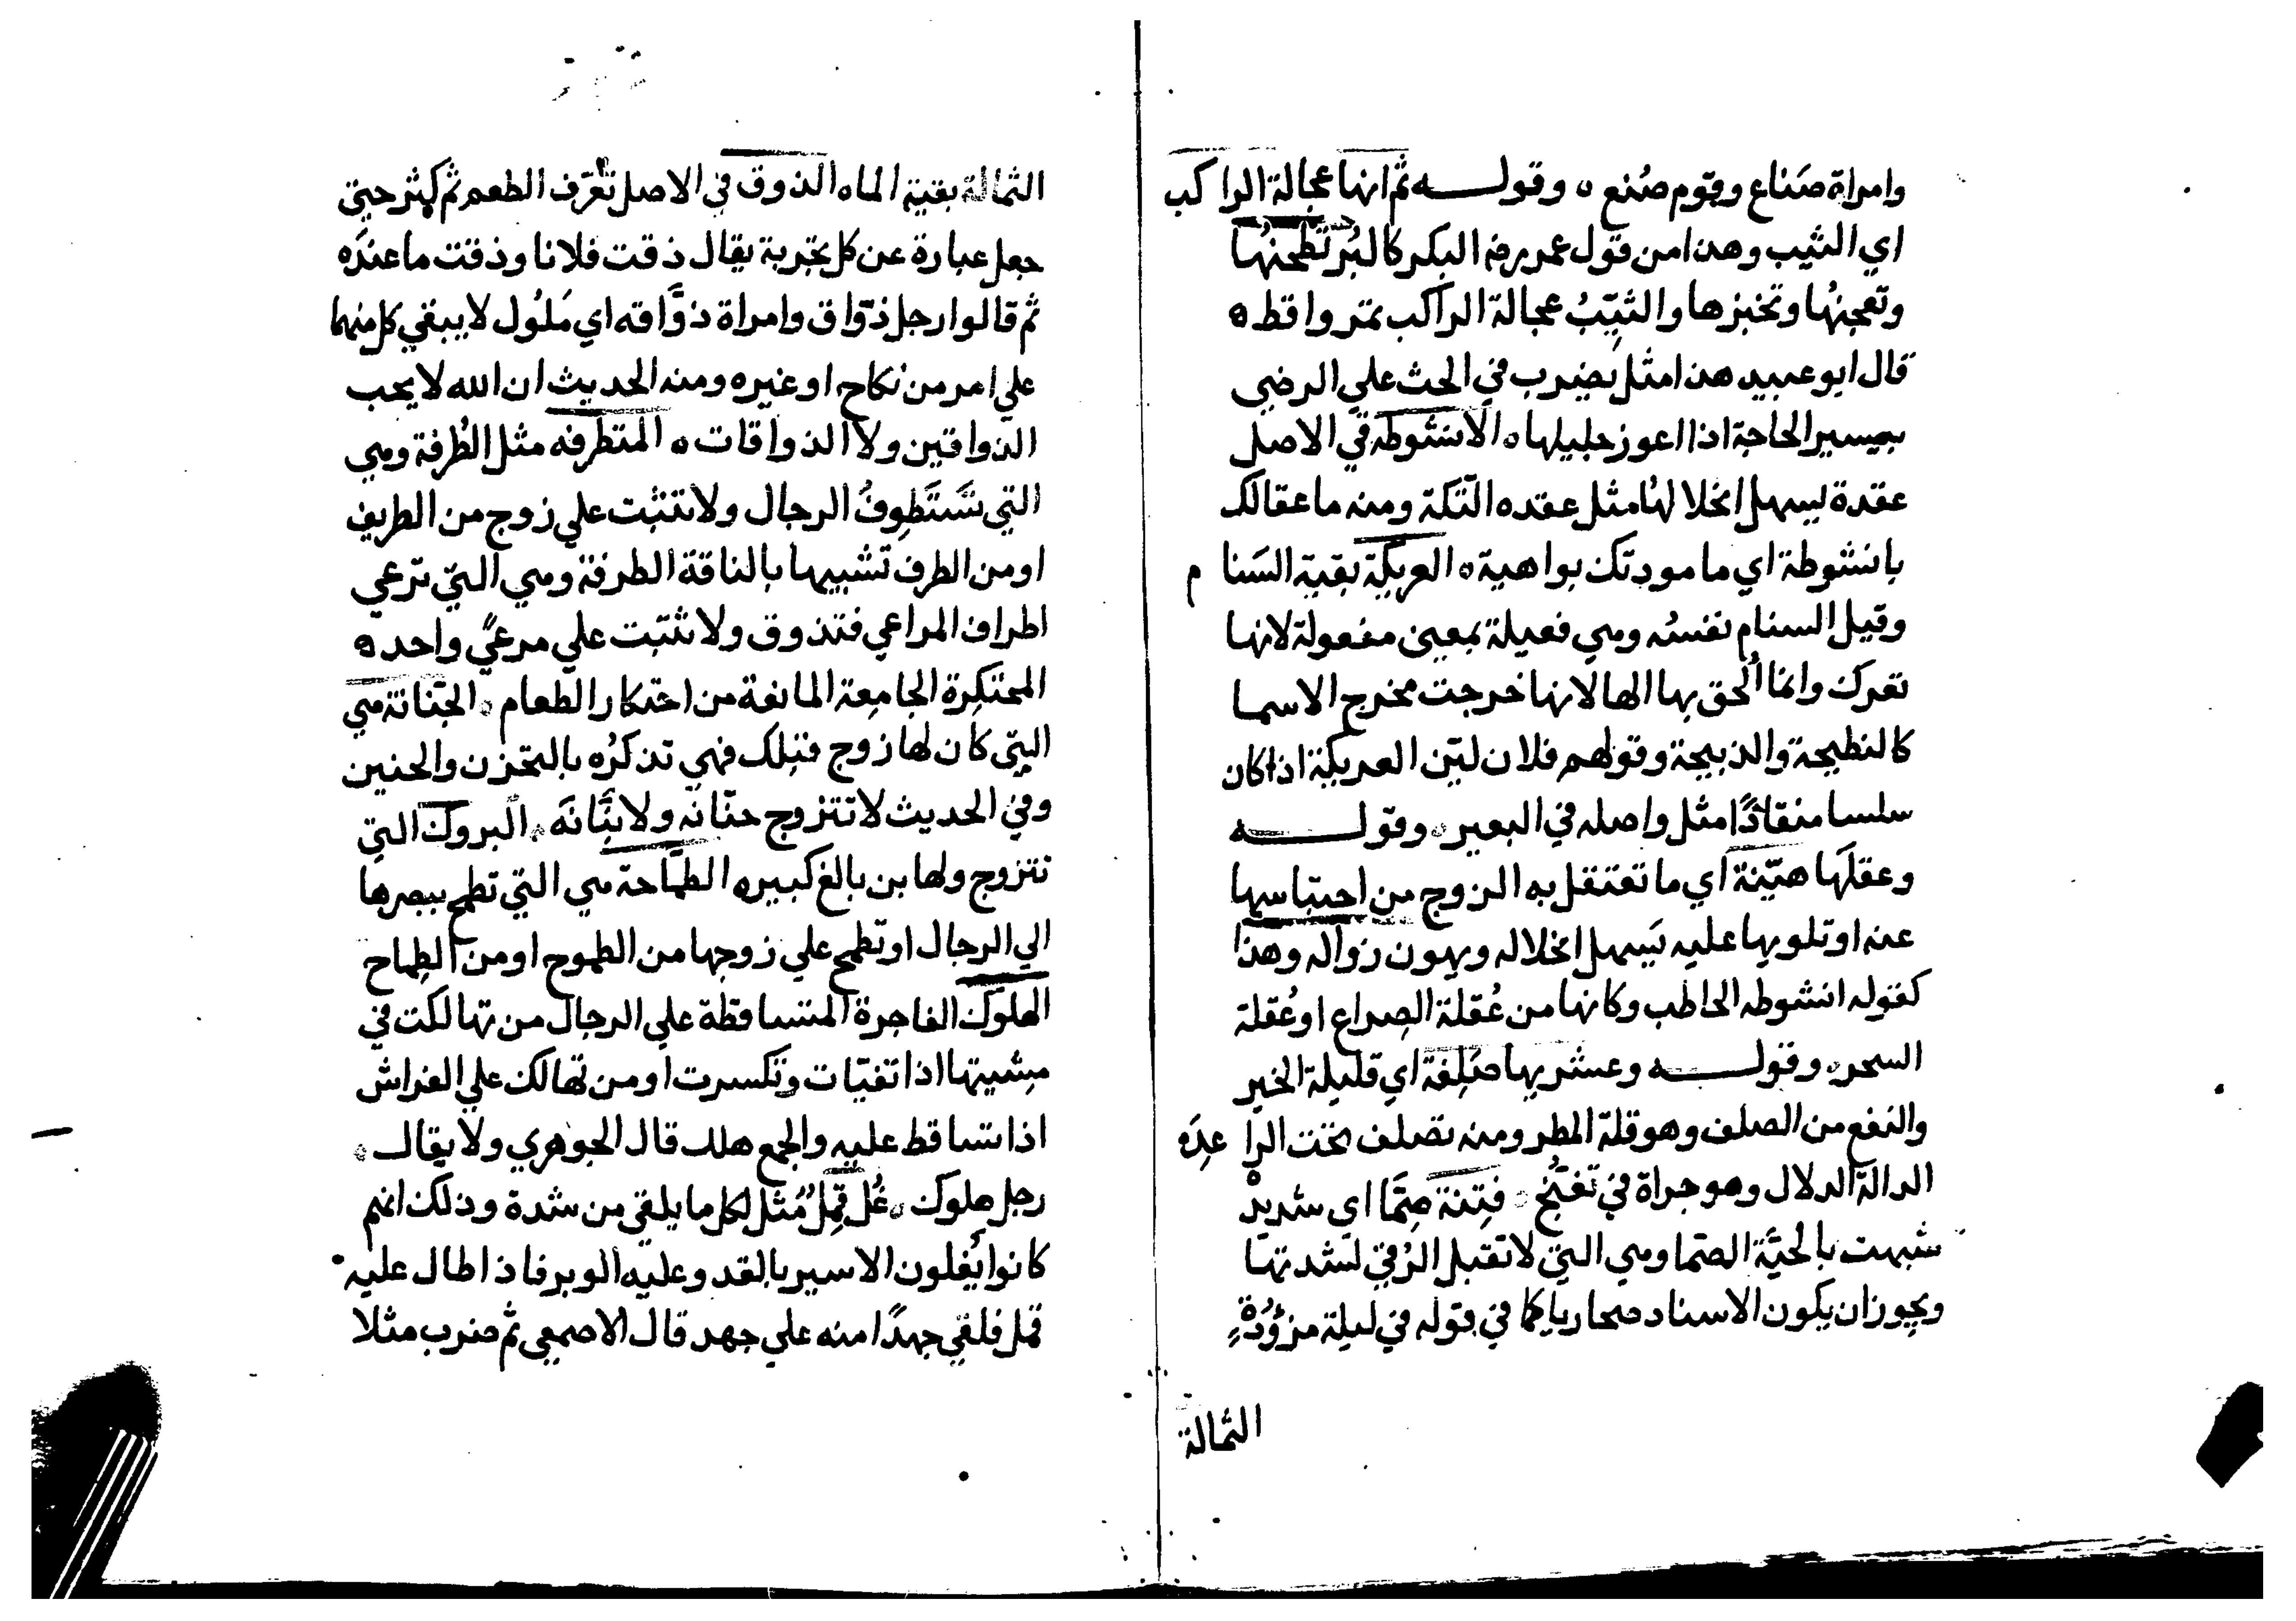 وامراة صَناع وقوم صُنع ه وقولـــه ثم انها عجالة الراكب
اي الثيب وهذا من قول عمر رضه البكر كالبُر تطحنُها
وتعجنُها وتخبزها والثيّبُ عجالة الراكب تمر واقط ه
قال ابو عبيد هذا مثل يضرب في الحث علي الرضي
بيسير الحاجة اذا اعوز جليلها ه الانشوطه في الاصل
عقدة يسهل انحلالها مثل عقده التكة ومنه ما عقالك
بانشوطة اي ما مودتك بواهية ه العريكة بقية السَنام
وقيل السنام نفسُه وهي فعيلة بمعني مفعولة لانها
تعرك وانما اُلحق بها الها لانها خرجت مخرج الاسما
كالنطيحة والذبيحة وقولهم فلان ليّن العريكة اذا كان
سلسا منقادًا مثل واصله في البعير ه وقولـــه
وعقلَها هيّنة اي ما تعتقل به الزوج من احتباسها
عنه او تلويها عليه يَسهل انحلاله ويهون زواله وهذا
كقوله انشوطه الخاطب وكانها من عُقلة الصراع او عُقلة
السحر ه وقولـــه وعشرتها صَلِفة اي قليلة الخير
والنفع من الصلف وهو قلة المطر ومنه تصلف تحت الراعدَه
الدالة الدلال وهو جراة في تغنُّج ه فِتنة صِمَّا اي شديدة
شبهت بالحيَّة الصمّا وهي التي لا تقبل الرُقي لشدتها
ويجوز ان يكون الاسناد مجازيا كما في قوله في ليلة مزؤُدةٍ
الثمالة
الثمالة بقية الماه الذوق في الاصل تعرّف الطعم ثم كثر حتي
جعل عبارة عن كل تجربة يقال ذقت فلانا وذقت ما عنده
ثم قالوا رجل ذوّاق وامراة ذوَّاقه اي مَلُول لا يبقي كل منهما
علي امر من نكاح او غيره ومنه الحديث ان الله لا يحب
الذواقين ولا الذواقات ه المتطرفه مثل الطُرفة وهي
التي تَستَطرِفُ الرجال ولا تثبت علي زوج من الطريف
او من الطرف تشبيها بالناقة الطرفة وهي التي ترعي
اطراف المراعي فتذوق ولا تثبّت علي مرعيً واحد ه
المحتكِرة الجامِعة المانعة من احتكار الطعام ه الحنّانة هي
التي كان لها زوج قبلك فهي تذكرُه بالتحزن والحنين
وفي الحديث لا تتزوج حنّانَه ولا منَّانَه ه البروك التي
تتزوج ولها بن بالغ كبير ه الطمَّاحة هي التي تطمح ببصرها
الي الرجال او تطمح علي زوجها من الطموح او من الطِماح
الهلوك الفاجرة المتساقطة علي الرجال من تهالكت في
مشيتها اذا تفيّات وتكسرت او من تهالك علي الفراش
اذا تساقط عليه والجمع هلك قال الجوهري ولا يقال
رجل هلوك ه غُل قمِلُ مَثل لكل ما يلقي من شدة وذلك انهم
كانوا يُغلون الاسير بالقد وعليه الوبر فاذا طال عليه
قمل فلقي جهدًا منه علي جهد قال الاصمعي ثم ضرب مثلا